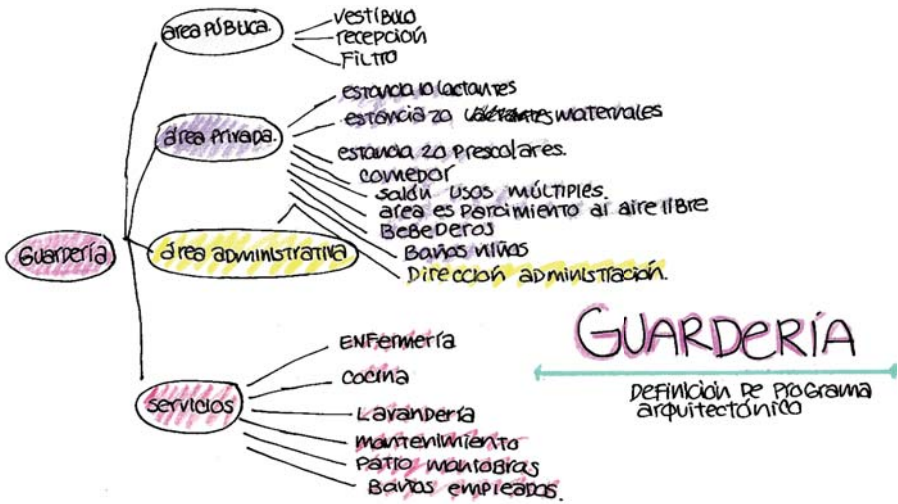 área PÚBLICA.
vestíbulo
recepción
Filtro
área privada.
estancia 10 lactantes
estancia 20 maternales
estancia 20 prescolares.
comedor
salón usos múltiples.
area esparcimiento al aire libre
Bebederos
Baños niños
Guardería
área administrativa
Dirección administración.
servicios
ENFermería
cocina
Lavandería
mantenimiento
patio maniobras
Baños empleados.
GUARDERÍA
Definición de Programa
arquitectónico